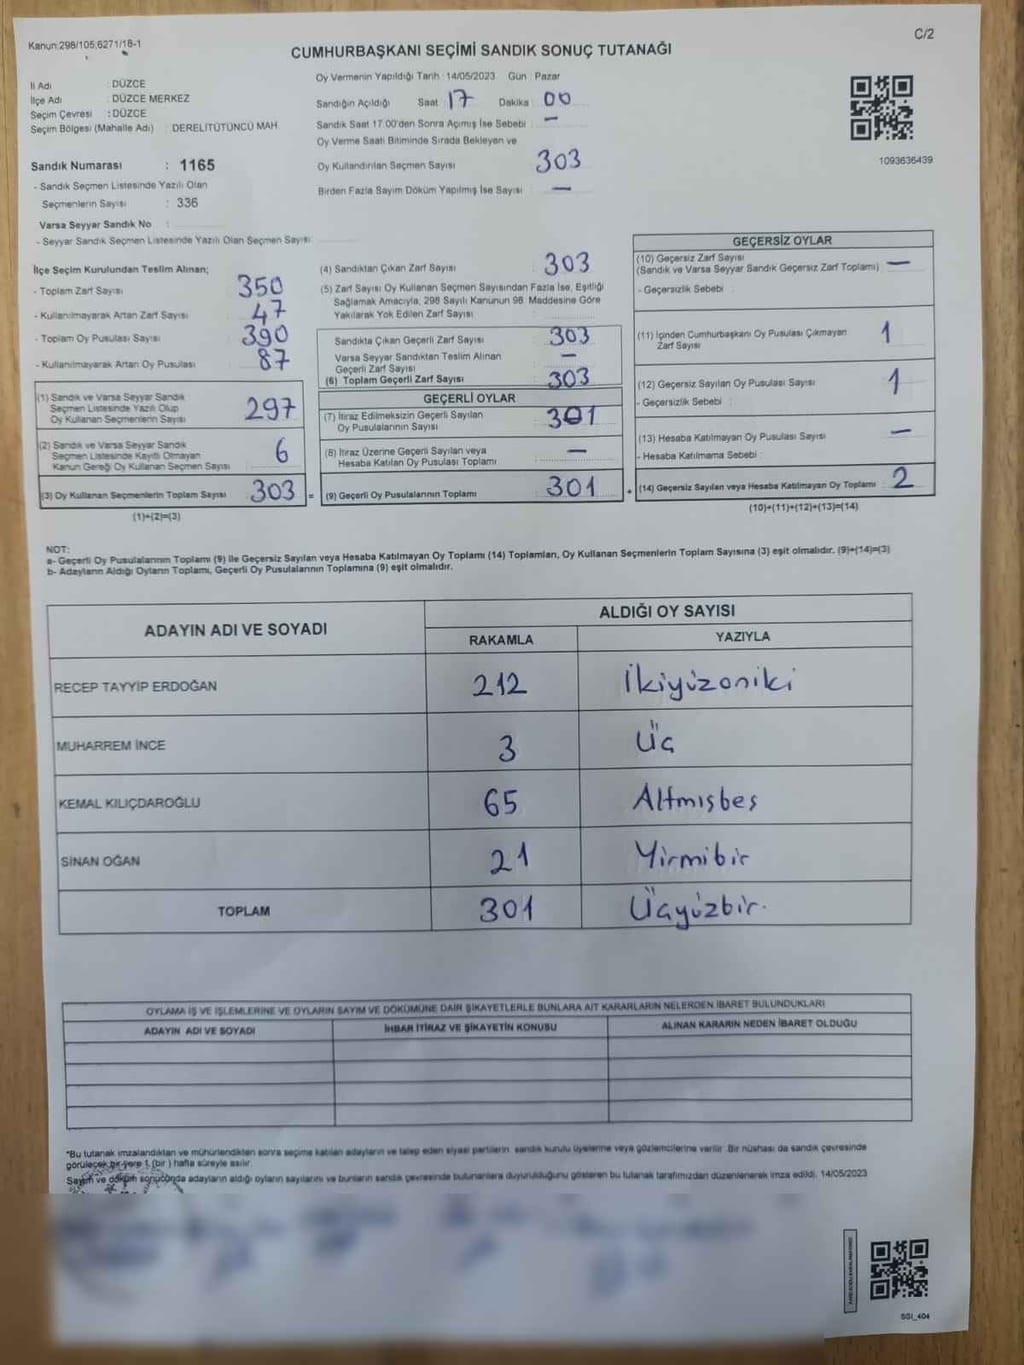 Kanun:298/105,6271/18-1
C/2
CUMHURBAŞKANI SEÇİMİ SANDIK SONUÇ TUTANAĞI
İl Adı : DÜZCE
İlçe Adı : DÜZCE MERKEZ
Seçim Çevresi : DÜZCE
Seçim Bölgesi (Mahalle Adı) : DERELİTÜTÜNCÜ MAH.
Sandık Numarası : 1165
- Sandık Seçmen Listesinde Yazılı Olan
Seçmenlerin Sayısı : 336
Varsa Seyyar Sandık No :
- Seyyar Sandık Seçmen Listesinde Yazılı Olan Seçmen Sayısı :
Oy Vermenin Yapıldığı Tarih : 14/05/2023 Gün : Pazar
Sandığın Açıldığı Saat : 17 Dakika : 00
Sandık Saat 17.00'den Sonra Açımış İse Sebebi : —
Oy Verme Saati Bitiminde Sırada Bekleyen ve
Oy Kullandırılan Seçmen Sayısı : 303
Birden Fazla Sayım Döküm Yapılmış İse Sayısı : —
1093636439
İlçe Seçim Kurulundan Teslim Alınan;
- Toplam Zarf Sayısı : 350
- Kullanılmayarak Artan Zarf Sayısı : 47
- Toplam Oy Pusulası Sayısı : 390
- Kullanılmayarak Artan Oy Pusulası : 87
(1) Sandık ve Varsa Seyyar Sandık
Seçmen Listesinde Yazılı Olup
Oy Kullanan Seçmenlerin Sayısı : 297
(2) Sandık ve Varsa Seyyar Sandık
Seçmen Listesinde Kayıtlı Olmayan
Kanun Gereği Oy Kullanan Seçmen Sayısı : 6
(3) Oy Kullanan Seçmenlerin Toplam Sayısı : 303 =
(1)+(2)=(3)
(4) Sandıktan Çıkan Zarf Sayısı : 303
(5) Zarf Sayısı Oy Kullanan Seçmen Sayısından Fazla İse, Eşitliği
Sağlamak Amacıyla, 298 Sayılı Kanunun 98. Maddesine Göre
Yakılarak Yok Edilen Zarf Sayısı :
Sandıkta Çıkan Geçerli Zarf Sayısı : 303
Varsa Seyyar Sandıktan Teslim Alınan
Geçerli Zarf Sayısı : —
(6) Toplam Geçerli Zarf Sayısı : 303
GEÇERLİ OYLAR
(7) İtiraz Edilmeksizin Geçerli Sayılan
Oy Pusulalarının Sayısı : 301
(8) İtiraz Üzerine Geçerli Sayılan veya
Hesaba Katılan Oy Pusulası Toplamı : —
(9) Geçerli Oy Pusulalarının Toplamı : 301 +
GEÇERSİZ OYLAR
(10) Geçersiz Zarf Sayısı
(Sandık ve Varsa Seyyar Sandık Geçersiz Zarf Toplamı) : —
- Geçersizlik Sebebi :
(11) İçinden Cumhurbaşkanı Oy Pusulası Çıkmayan
Zarf Sayısı : 1
(12) Geçersiz Sayılan Oy Pusulası Sayısı : 1
- Geçersizlik Sebebi :
(13) Hesaba Katılmayan Oy Pusulası Sayısı : —
- Hesaba Katılmama Sebebi :
(14) Geçersiz Sayılan veya Hesaba Katılmayan Oy Toplamı : 2
(10)+(11)+(12)+(13)=(14)
NOT:
a- Geçerli Oy Pusulalarının Toplamı (9) ile Geçersiz Sayılan veya Hesaba Katılmayan Oy Toplamı (14) Toplamları, Oy Kullanan Seçmenlerin Toplam Sayısına (3) eşit olmalıdır. (9)+(14)=(3)
b- Adayların Aldığı Oyların Toplamı, Geçerli Oy Pusulalarının Toplamına (9) eşit olmalıdır.
ADAYIN ADI VE SOYADI ALDIĞI OY SAYISI
RAKAMLA YAZIYLA
RECEP TAYYİP ERDOĞAN 212 İkiyüzoniki
MUHARREM İNCE 3 Üç
KEMAL KILIÇDAROĞLU 65 Altmışbeş
SİNAN OĞAN 21 Yirmibir
TOPLAM 301 Üçyüzbir.
OYLAMA İŞ VE İŞLEMLERİNE VE OYLARIN SAYIM VE DÖKÜMÜNE DAİR ŞİKAYETLERLE BUNLARA AİT KARARLARIN NELERDEN İBARET BULUNDUKLARI
ADAYIN ADI VE SOYADI İHBAR İTİRAZ VE ŞİKAYETİN KONUSU ALINAN KARARIN NEDEN İBARET OLDUĞU
*Bu tutanak imzalandıktan ve mühürlendikten sonra seçime katılan adayların ve talep eden siyasi partilerin sandık kurulu üyelerine veya gözlemcilerine verilir. Bir nüshası da sandık çevresinde
görülecek bir yere 1 (bir) hafta süreyle asılır.
Sayım ve döküm sonucunda adayların aldığı oyların sayılarını ve bunların sandık çevresinde bulunanlara duyurulduğunu gösteren bu tutanak tarafımızdan düzenlenerek imza edildi. 14/05/2023
SGI_404